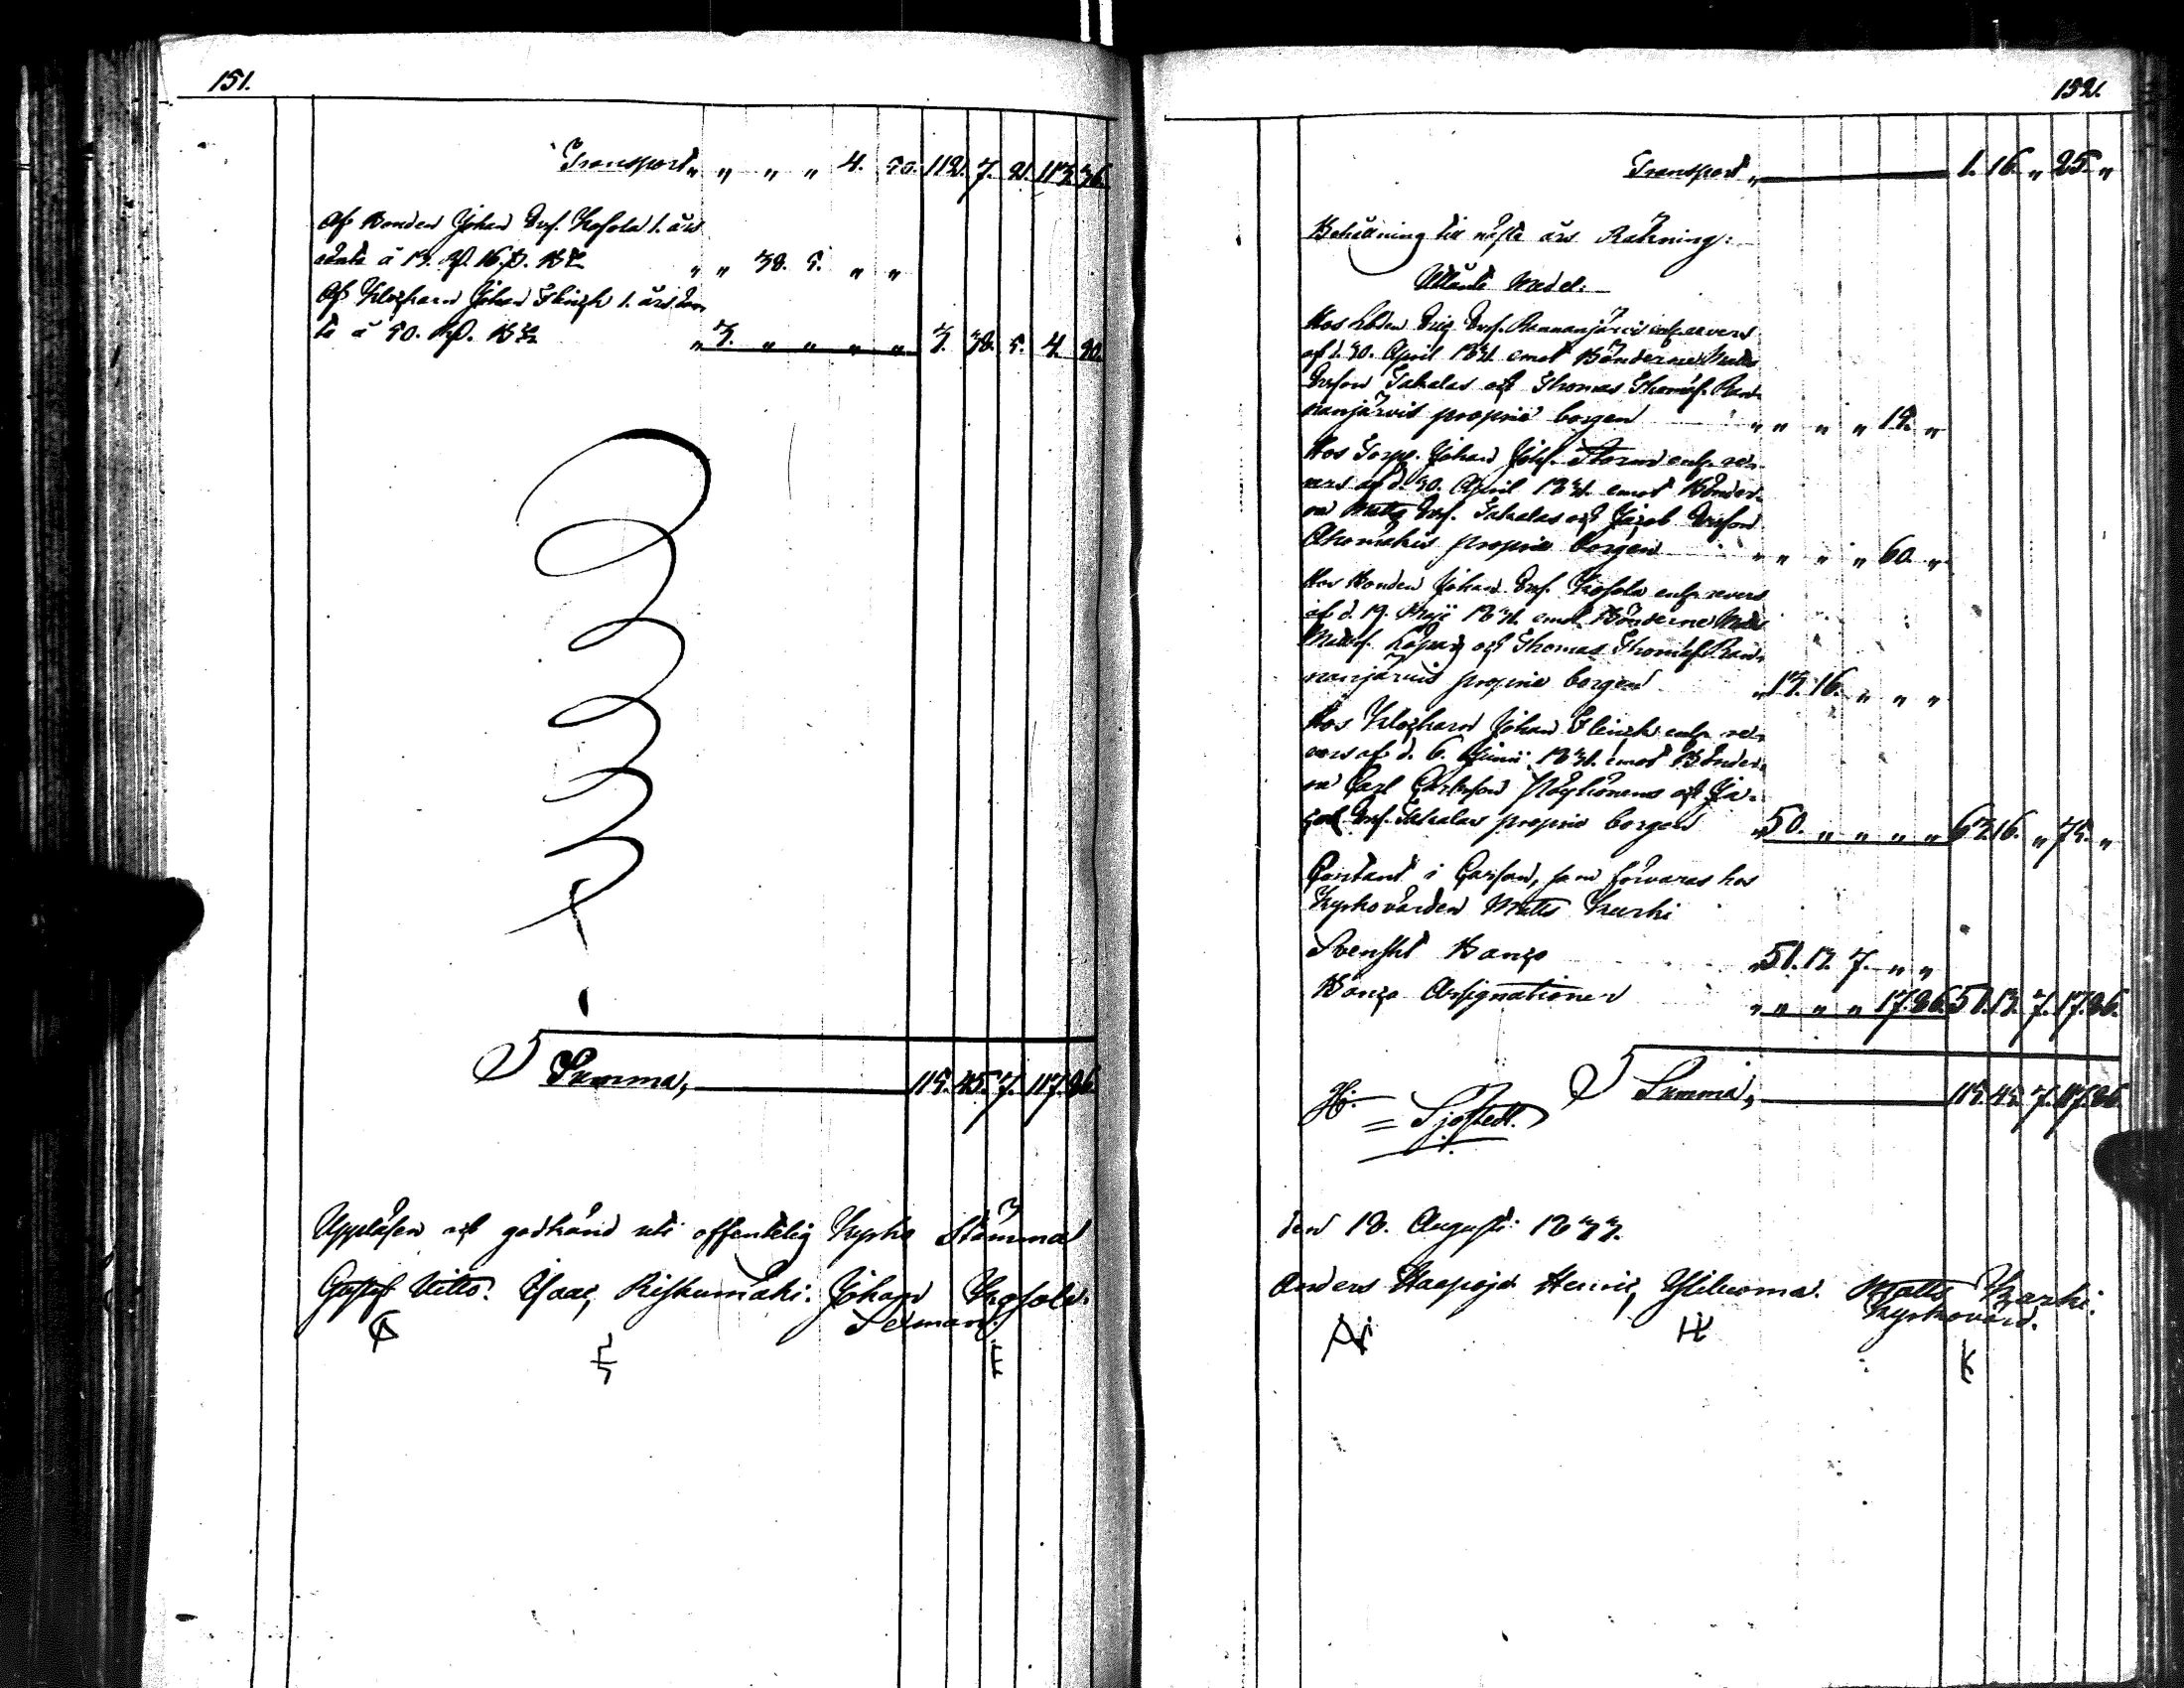 151.
Transport „ „ „ „ 4. 50. 112. 7. 2. 113. 36.
Af Bonden Johan Ersf. Kosola 1. års
ränta à 13. Rd. 16. s. Bco „ „ 38. 5. „ „
Af Klockaren Johan Flinck 1. års rän-
ta à 50. Rd. Bco „ 3. „ „ „ „ 3. 38. 5. 4. 50.
Summa, 115. 45. 7. 117. 86.
Uppläsen och godkänd uti offentelig Kyrko Stämma
Gustaf Nitto. Isaac Riskumäki. Johan Kosola.
Sexman.
152.
Transport „ 1. 16. „ 25. „
Behållning till näste års Räkning:
Utlånte Medel:
Hos Lbden Eric Ersf. Rannanjärvis enl. revers
af d. 30. April 1831. emot Bönderne Matts
Ersson Takalas och Thomas Thomæf. Ran-
nanjärvis proprie borgen „ „ „ „ 15. „
Hos Torp. Johan Johsf. Storm enl. re-
vers af d. 30. April 1831. emot Bönder-
ne Matts Ersf. Takalas och Jacob Ersson
Ahomäkis proprie borgen „ „ „ „ 60. „
Hos Bonden Johan Ersf. Kosola enl. revers
af d. 19. Maji 1831. emot Bönderne Matts
Mattsf. och Thomas Thomæf. Ran-
nanjärvis proprie borgen „ 13. 16. „ „ „
Hos Klockaren Johan Flinck enl. re-
vers af d. 6. Junii 1831. emot Bönder-
ne Carl Carlsson och Ja-
cob Ersf. Takalas proprie borgen „ 50. „ „ „ „ 63. 16. „ 75. „
Contant i Cassan, som förvaras hos
Kyrkovärden Matts Kurki
Svenskt Banco „ 51. 13. 7. „ „
Banco Assignationer „ „ „ „ 17. 86. 51. 13. 7. 17. 86.
Summa, 115. 45. 7. 117. 86.
Hj. Sjöstedt.
den 18. Augusti 1833.
Anders Haapoja Henric Yliluoma. Matts Kurki.
Kyrkovärd.